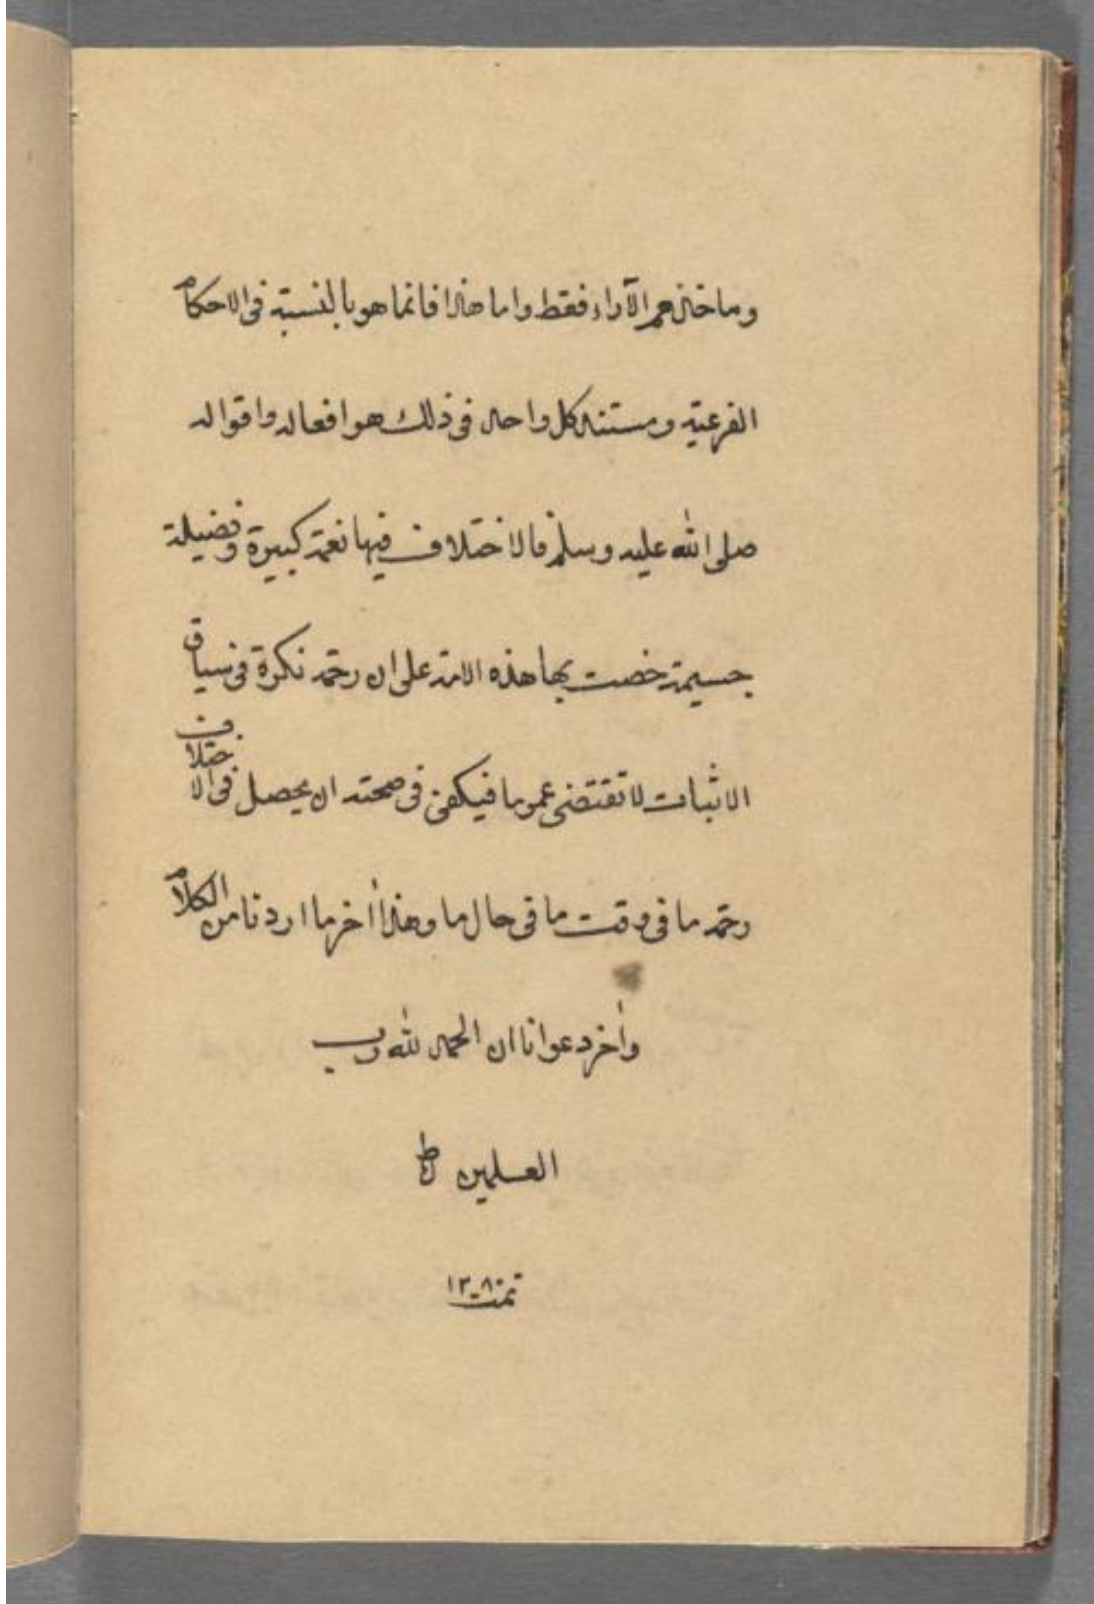 وماخذهم الآراء فقط واما هذا فانما هو بالنسبة في الاحكام
الفرعية ومستند كل واحد في ذلك هو افعاله واقواله
صلى الله عليه وسلم فالاختلاف فيها نعمة كبيرة وفضيلة
جسيمة خصت بها هذه الامة على ان رحمة نكرة في سياق
الاثبات لا تقتضي عموما فيكفي في صحته ان يحصل في الاختلاف
رحمة ما في وقت ما في حال ما وهذا اٰخر ما اردنا من الكلام
واٰخر دعوانا ان الحمد لله رب
العلمين
تمت ١٢٨٠